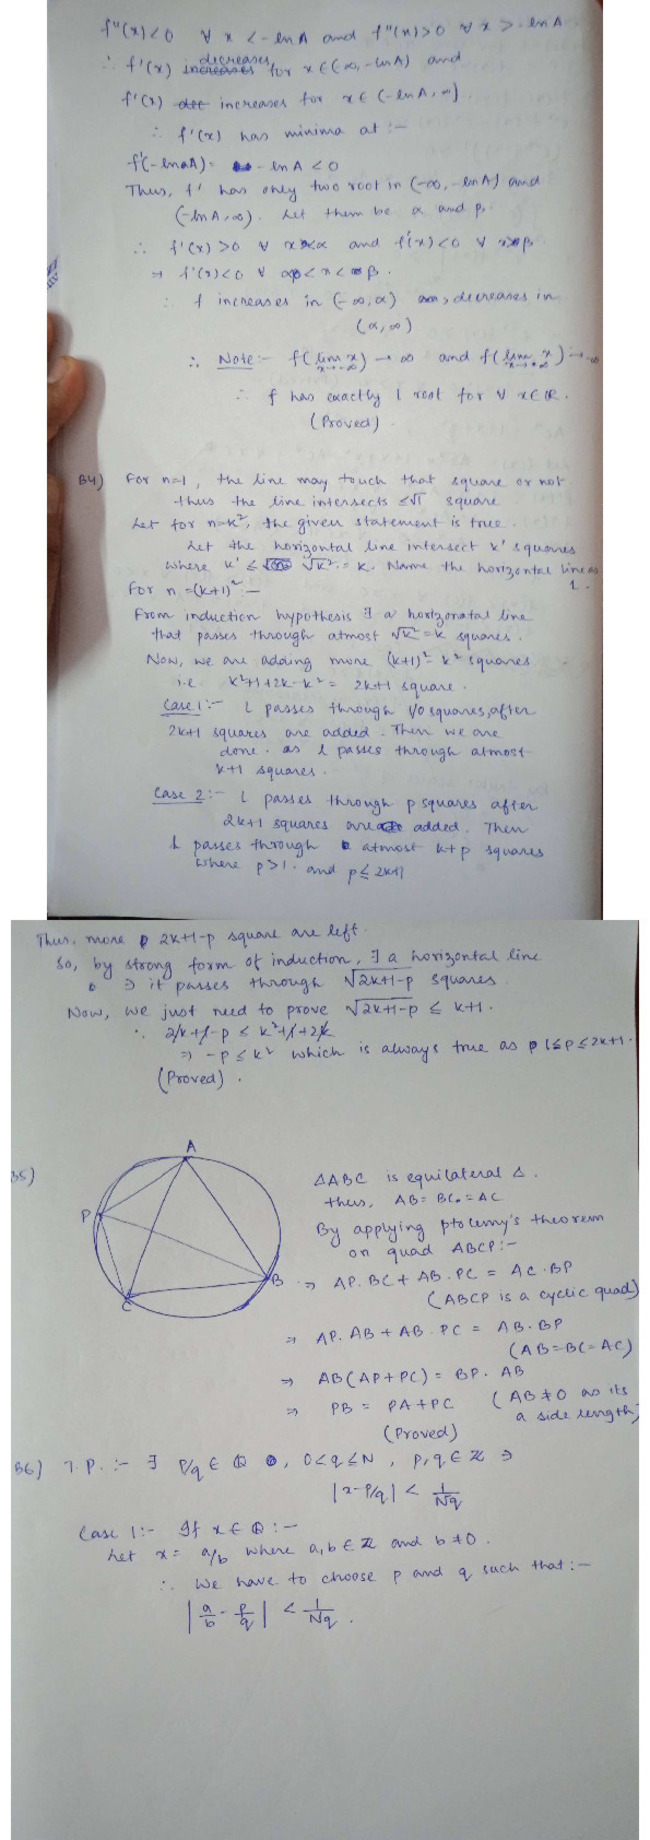 f''(x)<0 ∀ x < -lnA and f''(x)>0 ∀ x > -lnA
∴ f'(x) decreases for x∈(∞,-lnA) and
f'(x) increases for x∈ (-lnA,∞]
∴ f'(x) has minima at :-
f'(-lnA)= -lnA <0
Thus, f' has only two root in (-∞,-lnA) and
(-lnA,∞). Let them be α and β.
∴ f'(x)>0 ∀ x<α and f'(x)<0 ∀ x>β
⇒ f'(x)<0 ∀ α<x<β.
∴ f increases in (-∞,α) decreases in
(α,∞)
∴ Note:- f(lim x→-∞ x) → ∞ and f(lim x→∞ x) → -∞
∴ f has exactly 1 root for ∀ x∈R.
(Proved)
B4) For n=1, the line may touch that square or not
thus the line intersects ≤√1 square
Let for n=k², the given statement is true.
Let the horizontal line intersect k' squares
where k' ≤ √k² = k. Name the horizontal line as
l.
For n=(k+1)²:-
From induction hypothesis ∃ a horizonatal line
that passes through atmost √k²=k squares.
Now, we are adding more (k+1)²-k² squares
i.e k²+1+2k-k² = 2k+1 square.
Case 1:- L passes through 1/0 squares, after
2k+1 squares are added. Then we are
done. as l passes through atmost
k+1 squares.
Case 2:- L passes through p squares after
2k+1 squares are added. Then
L passes through atmost k+p squares
where p>1. and p≤2k+1
Thus, more 2k+1-p square are left.
So, by strong form of induction, ∃ a horizontal line
∋ it passes through √2k+1-p squares.
Now, we just need to prove √2k+1-p ≤ k+1.
∴ 2k+1-p ≤ k²+1+2k
⇒ -p≤k² which is always true as 1≤p≤2k+1.
(Proved).
B5)
A
P
B
C
△ABC is equilateral △.
thus, AB=BC=AC
By applying ptolemy's theorem
on quad ABCP:-
⇒ AP.BC+AB.PC = AC.BP
(ABCP is a cyclic quad)
⇒ AP.AB+AB.PC = AB.BP
(AB=BC=AC)
⇒ AB(AP+PC)= BP.AB
⇒ PB = PA+PC (AB≠0 as its
a side length)
(Proved)
B6) T.P. :- ∃ P/q ∈ Q, 0<q≤N, p,q∈Z ∋
|x-P/q| < 1/Nq
Case 1:- If x∈Q:-
Let x= a/b where a,b∈Z and b≠0.
∴ We have to choose p and q such that:-
|a/b - p/q| < 1/Nq.